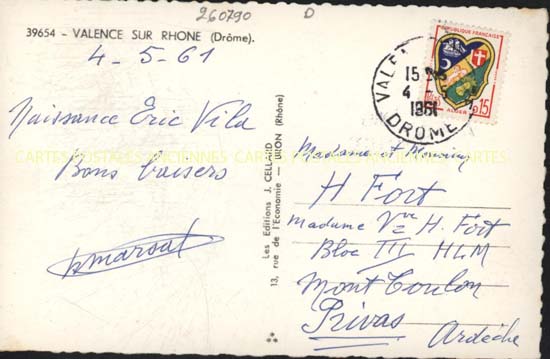 260790
D
39654 - VALENCE SUR RHONE (Drôme).
4-5-61
Naissance Eric Vila
Bons Baisers
CARTES POSTALES ANCIENNES CARTES POSTALES ANCIENNES CARTES POSTALES ANCIENNES
Les Editions J. CELLARD - BRON (Rhône)
13, rue de l'Economie
REPUBLIQUE FRANÇAISE
0,15
ALGER
15
4
1961
DROME
Madame et Monsieur
H Fort
Madame Vve H. Fort
Bloc III HLM
Mont Toulon
Privas
Ardèche